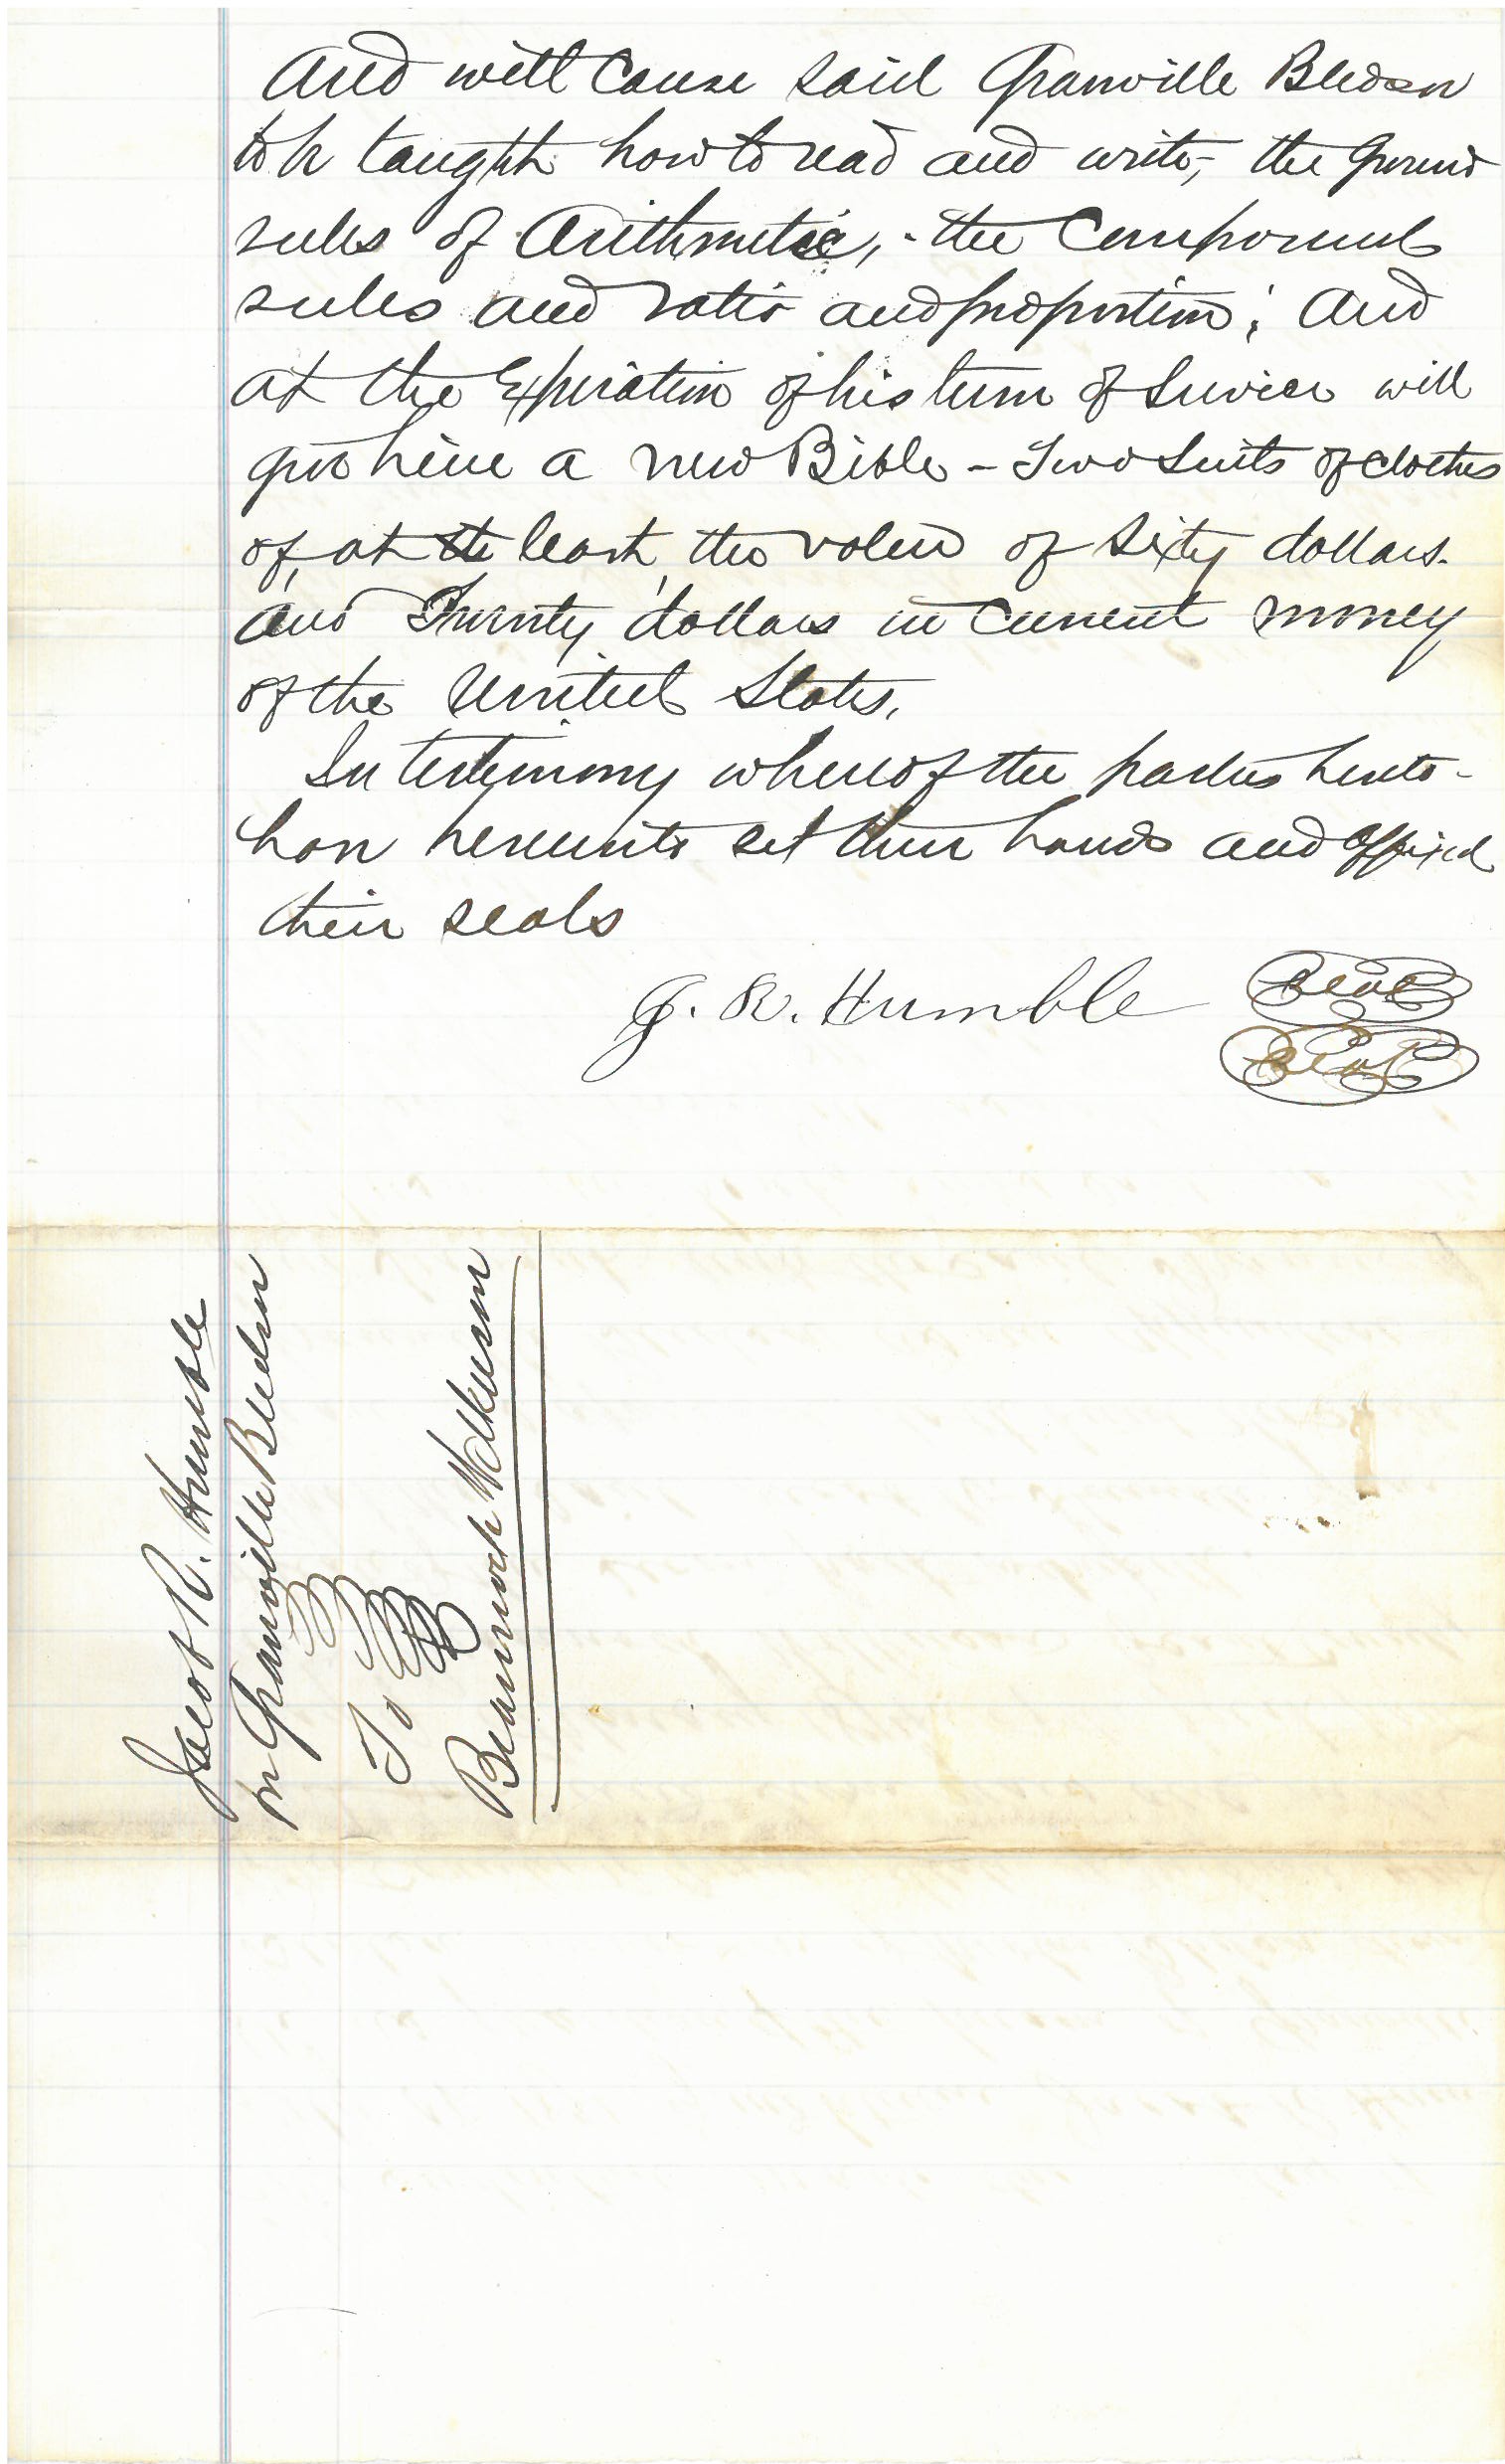 And will cause said Granville Bledsoe
to be taught how to read and write, the ground
rules of Arithmetic, - the Compound
rules and ratio and proportion; And
at the Expiration of his term of Service will
give him a new Bible - Two Suits of clothes
of, at the least, the value of Sixty dollars.
and Twenty dollars in Current money
of the United States.
In testimony whereof the parties hereto -
have hereunto set their hands and affixed
their seals
J. R. Humble Seal
Seal
Jacob R. Humble
Granville Bledsoe
To